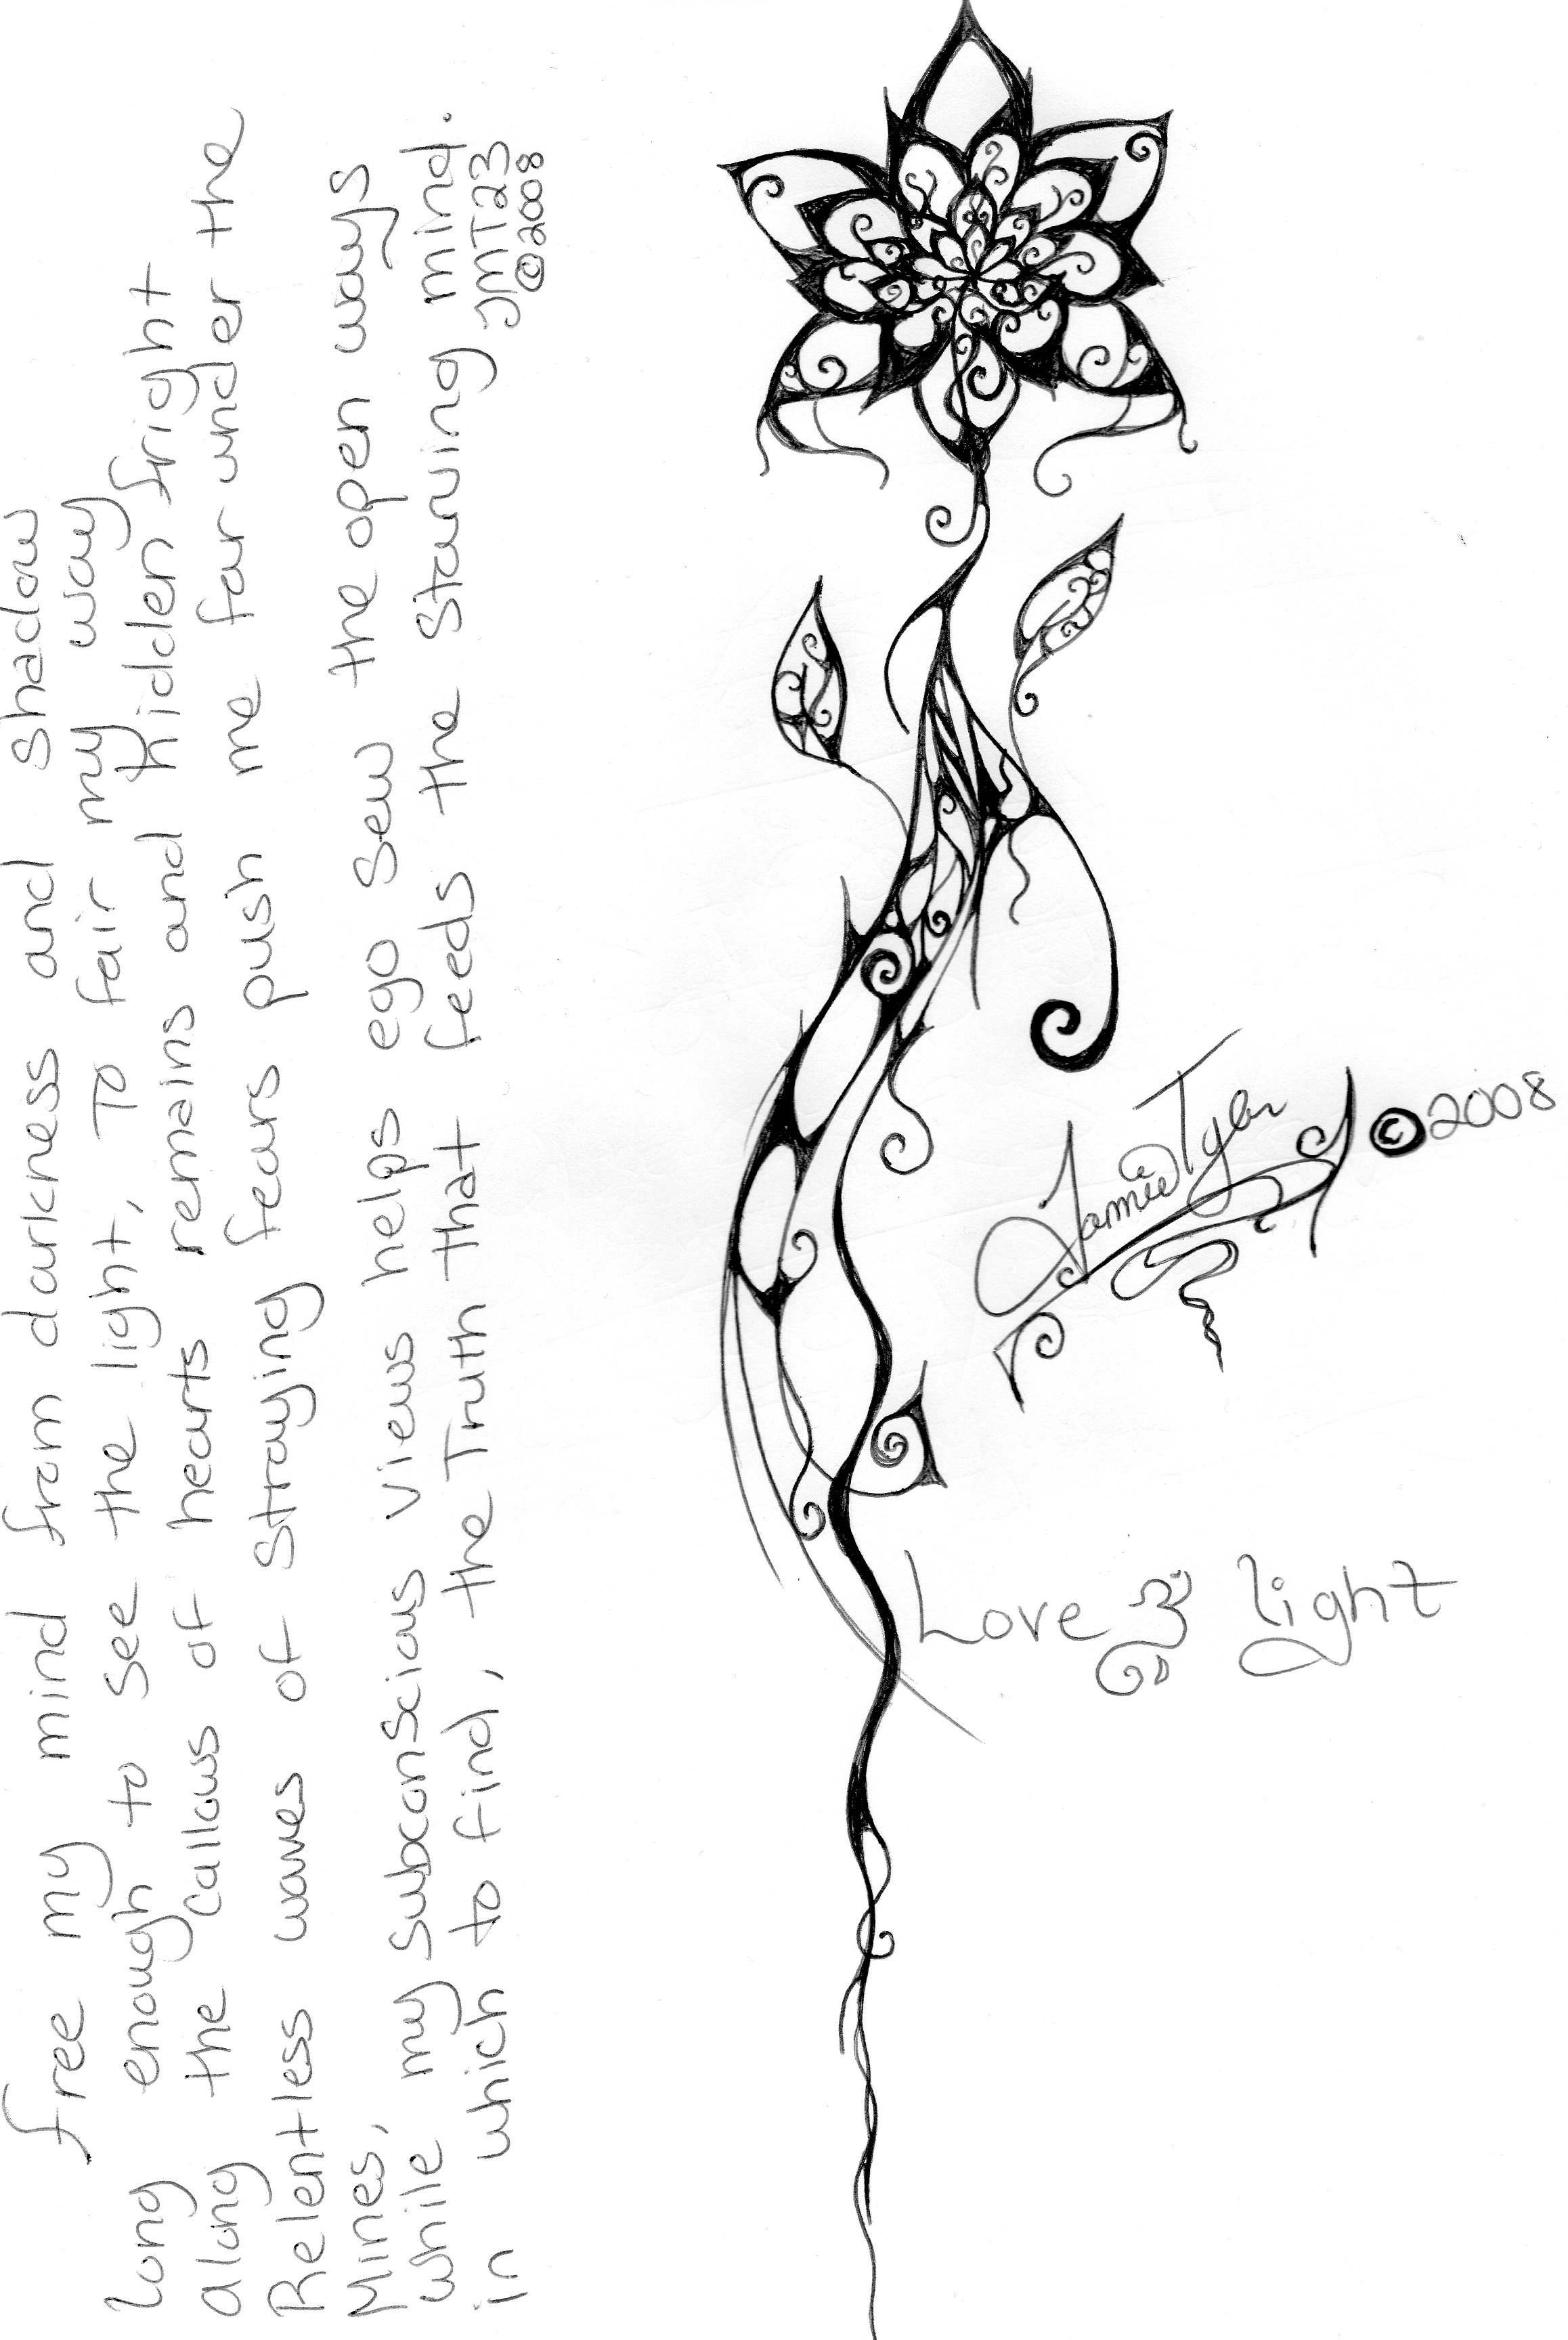 free my mind from darkness and shadow
long enough to see the light, To fair my way
along the callous of hearts remains and hidden fright
Relentless waves of straying fears push me far under the
Mines,
while my subconscious views helps ego sew the open ways
in which to find, the Truth that feeds the starving mind.
JMT23
©2008
Jamie Tyler ©2008
Love light